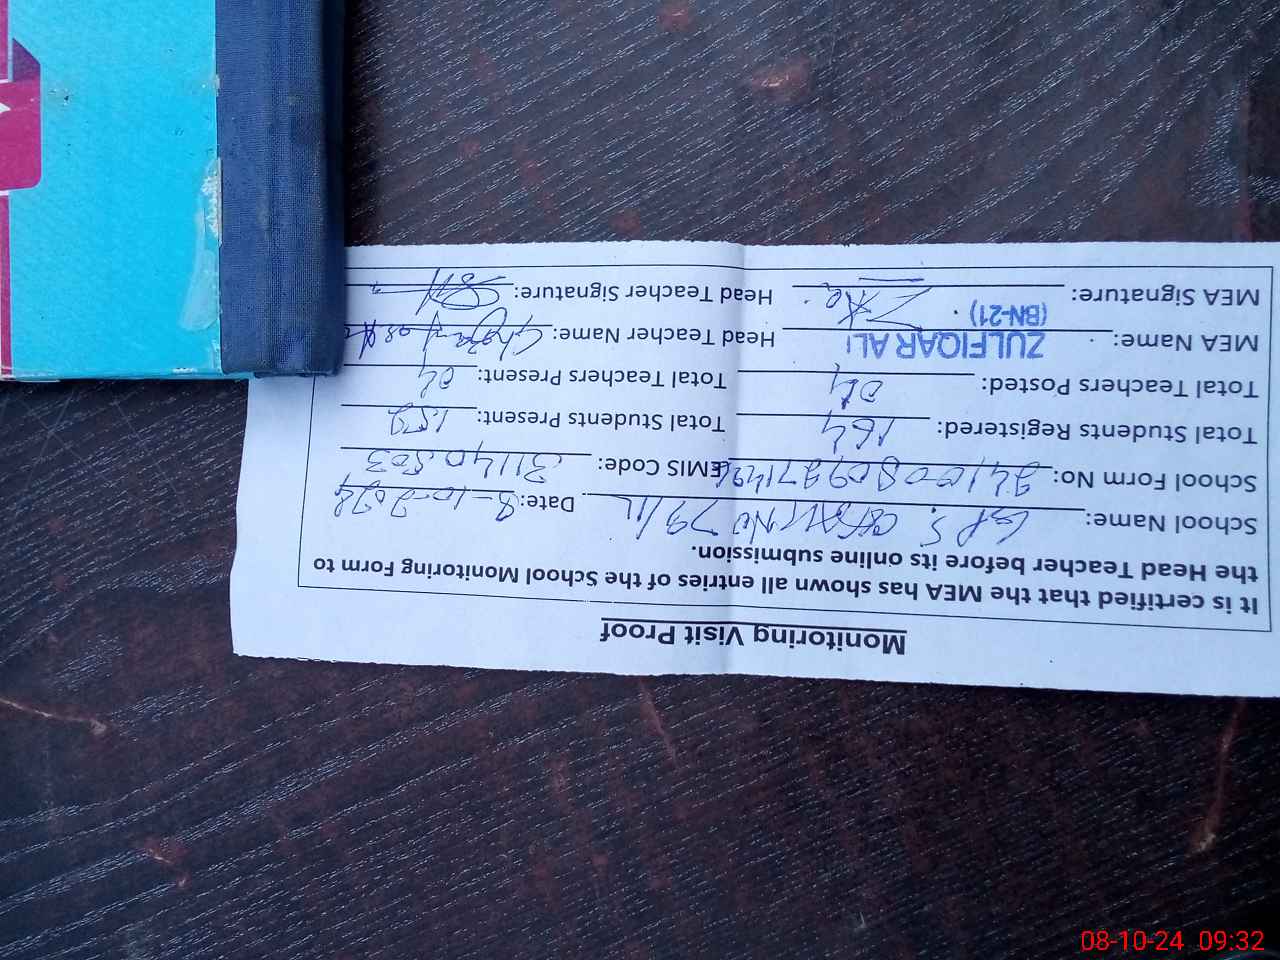 Monitoring Visit Proof
It is certified that the MEA has shown all entries of the School Monitoring Form to
the Head Teacher before its online submission.
School Name: No 79/ Date: 8-10-2024
School Form No: EMIS Code: 31140503
Total Students Registered: 164 Total Students Present: 159
Total Teachers Posted: 04 Total Teachers Present: 04
MEA Name: ZULFIQAR ALI Head Teacher Name:
(BN-21)
MEA Signature: Head Teacher Signature:
08-10-24 09:32